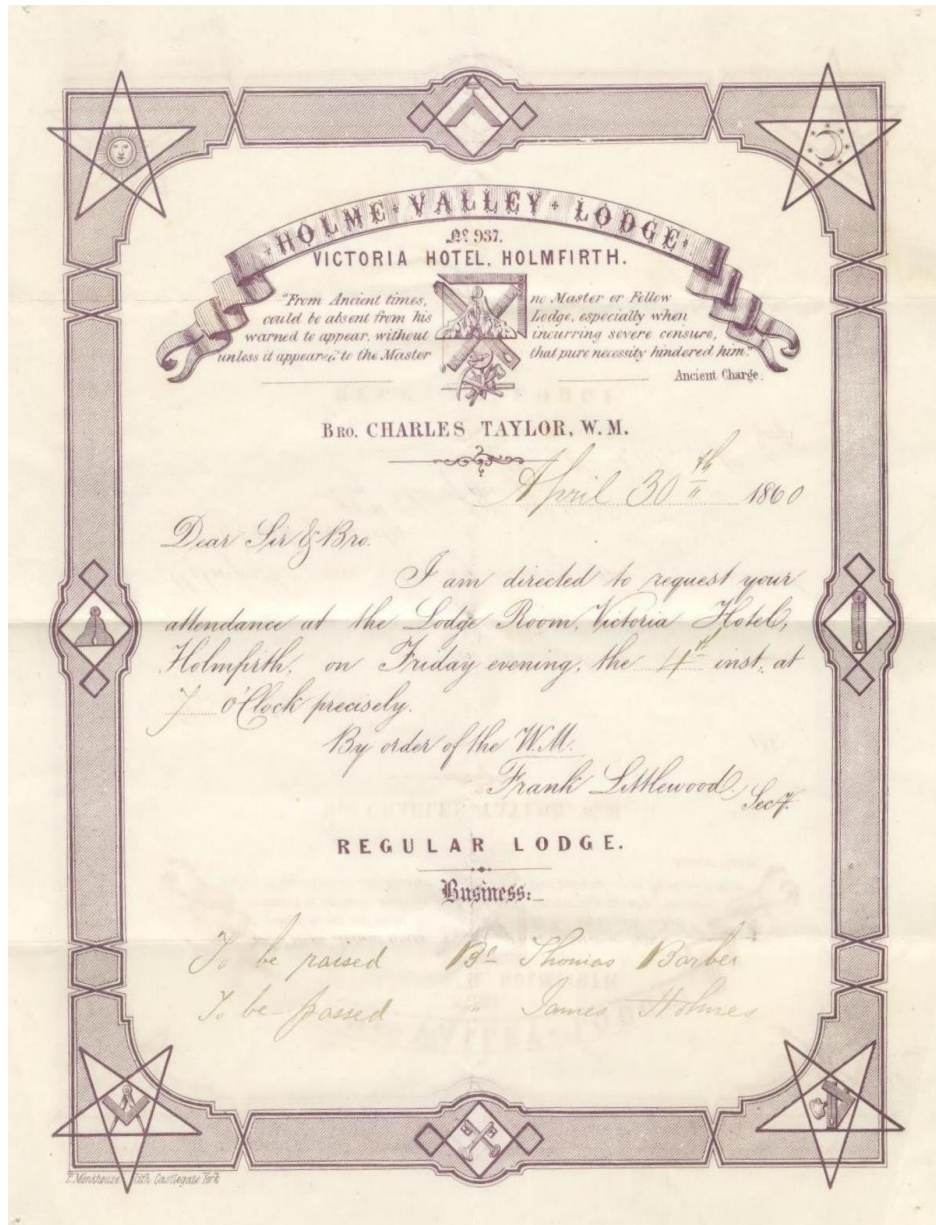 HOLME · VALLEY · LODGE
No 937.
VICTORIA HOTEL, HOLMFIRTH.
"From Ancient times, no Master or Fellow
could be absent from his Lodge, especially when
warned to appear, without incurring severe censure,
unless it appeared to the Master that pure necessity hindered him."
Ancient Charge.
BRO. CHARLES TAYLOR, W. M.
April 30th 1860
Dear Sir & Bro.
I am directed to request your
attendance at the Lodge Room, Victoria Hotel,
Holmfirth, on Friday evening, the 4th inst, at
7 o'Clock precisely.
By order of the W.M.
Frank Littlewood, Secy.
REGULAR LODGE.
Business:
To be raised Br Thomas Barber
To be passed " James Holmes
Monkhouse Lith Castlegate York